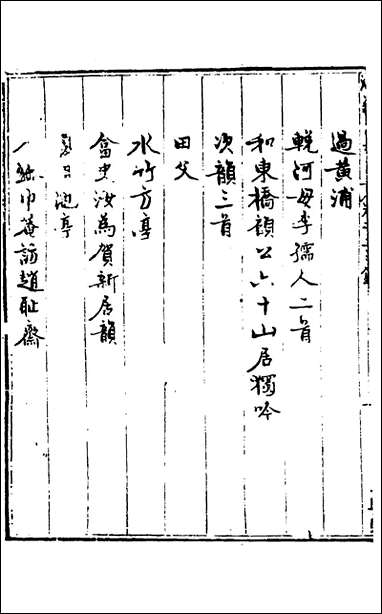 過黃浦
輓河母李孺人二首
和東橋顧公六十山居獨吟
次韻三首
田父
水竹方亭
畲史汝為賀新居韻
夏日池亭
八絲巾菴訪趙恥齋